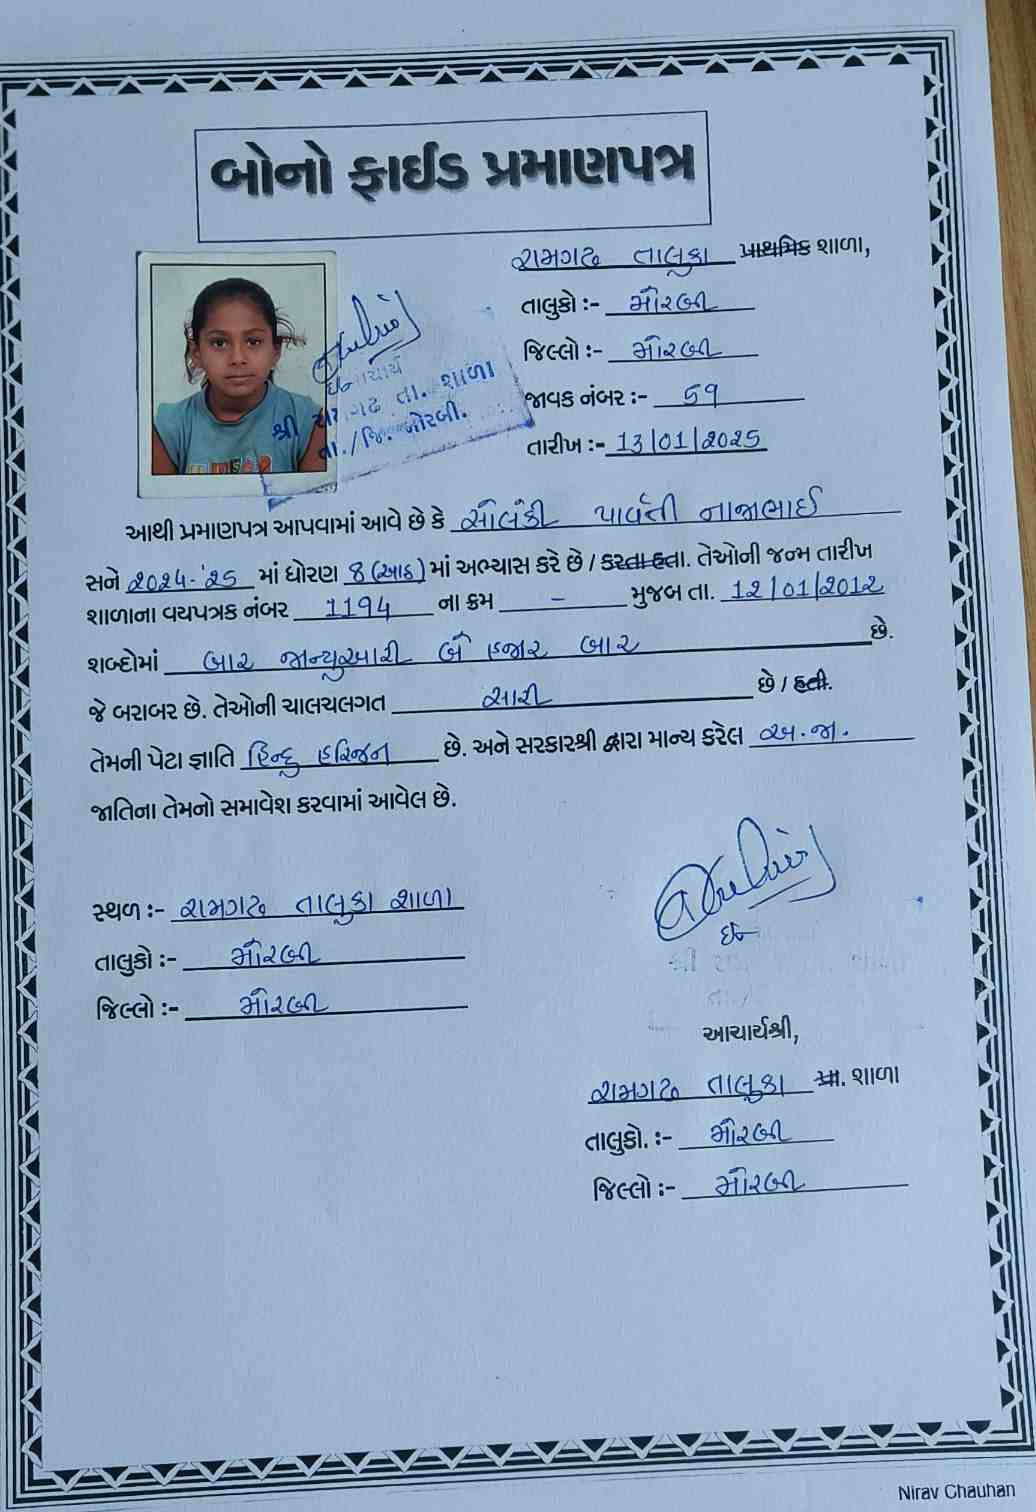 બોનો ફાઈડ પ્રમાણપત્ર
રામગઢ તાલુકા પ્રાથમિક શાળા,
તાલુકો :- મોરબી
જિલ્લો :- મોરબી
જાવક નંબર :- 59
તારીખ :- 13/01/2025
આચાર્ય
શ્રી રામગઢ તા. શાળા
તા./જિ. મોરબી.
આથી પ્રમાણપત્ર આપવામાં આવે છે કે સોલંકી પાર્વતી નાજાભાઈ
સને 2024-'25 માં ધોરણ 8 (આઠ) માં અભ્યાસ કરે છે / કરતા હતા. તેઓની જન્મ તારીખ
શાળાના વયપત્રક નંબર 1194 ના ક્રમ - મુજબ તા. 12/01/2012
શબ્દોમાં બાર જાન્યુઆરી બે હજાર બાર છે.
જે બરાબર છે. તેઓની ચાલચલગત સારી છે / હતી.
તેમની પેટા જ્ઞાતિ હિન્દુ હરિજન છે. અને સરકારશ્રી દ્વારા માન્ય કરેલ અ.જા.
જાતિના તેમનો સમાવેશ કરવામાં આવેલ છે.
સ્થળ :- રામગઢ તાલુકા શાળા
તાલુકો :- મોરબી
જિલ્લો :- મોરબી
આચાર્યશ્રી,
રામગઢ તાલુકા પ્રા. શાળા
તાલુકો. :- મોરબી
જિલ્લો :- મોરબી
Nirav Chauhan